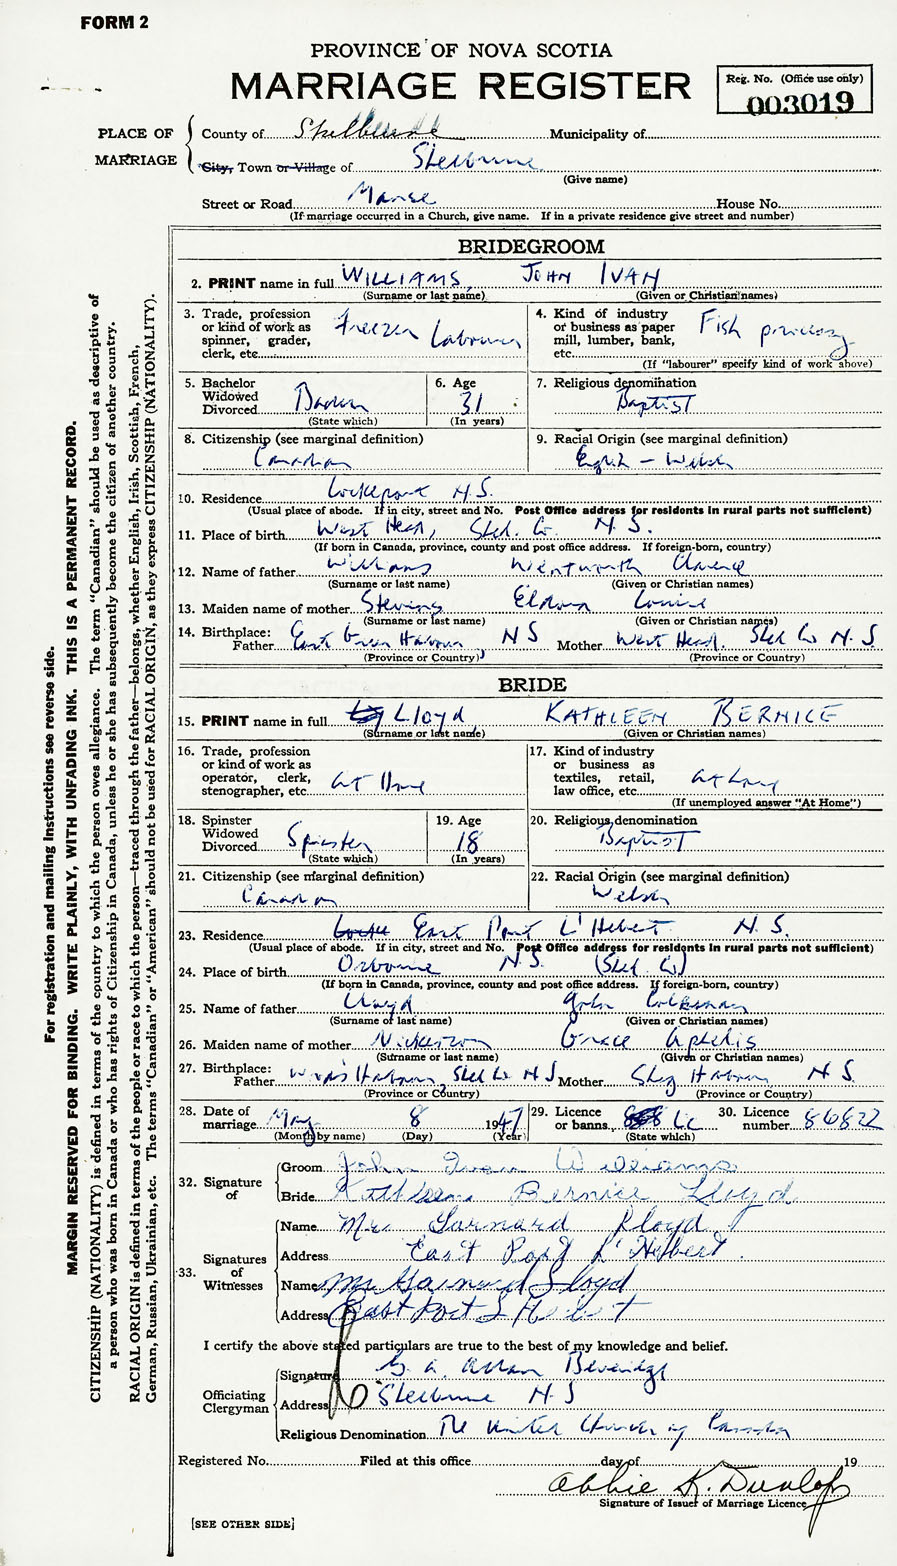 FORM 2
PROVINCE OF NOVA SCOTIA
MARRIAGE REGISTER
Reg. No. (Office use only)
003019
PLACE OF MARRIAGE
County of Shelburne Municipality of
City, Town or Village of Shelburne
(Give name)
Street or Road Manse House No.
(If marriage occurred in a Church, give name. If in a private residence give street and number)
BRIDEGROOM
2. PRINT name in full WILLIAMS, JOHN IVAN
(Surname or last name) (Given or Christian names)
3. Trade, profession or kind of work as spinner, grader, clerk, etc. Freezer Labourer
4. Kind of industry or business as paper mill, lumber, bank, etc. Fish processing
(If "labourer" specify kind of work above)
5. Bachelor Widowed Divorced
(State which)
6. Age 31
(In years)
7. Religious denomination
Baptist
8. Citizenship (see marginal definition)
Canadian
9. Racial Origin (see marginal definition)
English - Welsh
10. Residence Lockeport N.S.
(Usual place of abode. If in city, street and No. Post Office address for residents in rural parts not sufficient)
11. Place of birth West Head, Shel. Co. N.S.
(If born in Canada, province, county and post office address. If foreign-born, country)
12. Name of father Williams Wentworth Clarence
(Surname or last name) (Given or Christian names)
13. Maiden name of mother Louise
(Surname or last name) (Given or Christian names)
14. Birthplace: Father East Green Harbour, N S Mother West Head. Shel Co N.S.
(Province or Country) (Province or Country)
BRIDE
15. PRINT name in full Lloyd KATHLEEN BERNICE
(Surname or last name) (Given or Christian names)
16. Trade, profession or kind of work as operator, clerk, stenographer, etc. At Home
17. Kind of industry or business as textiles, retail, law office, etc. At Home
(If unemployed answer "At Home")
18. Spinster Widowed Divorced Spinster
(State which)
19. Age 18
(In years)
20. Religious denomination
Baptist
21. Citizenship (see marginal definition)
Canadian
22. Racial Origin (see marginal definition)
Welsh
23. Residence East Port L'Hebert N.S.
(Usual place of abode. If in city, street and No. Post Office address for residents in rural parts not sufficient)
24. Place of birth Osborne N.S. (Shel. Co)
(If born in Canada, province, county and post office address. If foreign-born, country)
25. Name of father Lloyd John
(Surname or last name) (Given or Christian names)
26. Maiden name of mother Nickerson Grace
(Surname or last name) (Given or Christian names)
27. Birthplace: Father Harbour, Shel Co N S Mother Harbour N S.
(Province or Country) (Province or Country)
28. Date of marriage May 8 1947
(Month by name) (Day) (Year)
29. Licence or banns Lic
(State which)
30. Licence number 86822
32. Signature of
Groom John Ivan Williams
Bride Kathleen Bernice Lloyd
33. Signatures of Witnesses
Name Mr. Garnard Lloyd
Address East Port L'Hebert.
Name Mrs Garnard Lloyd
Address East Port L Hebert
I certify the above stated particulars are true to the best of my knowledge and belief.
Officiating Clergyman
Signature G. A. Allan Beveridge
Address Shelburne N S
Religious Denomination The United Church of Canada
Registered No. Filed at this office day of 19
Abbie K. Dunlop
Signature of Issuer of Marriage Licence
[SEE OTHER SIDE]
For registration and mailing instructions see reverse side.
MARGIN RESERVED FOR BINDING. WRITE PLAINLY, WITH UNFADING INK. THIS IS A PERMANENT RECORD.
CITIZENSHIP (NATIONALITY) is defined in terms of the country to which the person owes allegiance. The term "Canadian" should be used as descriptive of
a person who was born in Canada or who has rights of Citizenship in Canada, unless he or she has subsequently become the citizen of another country.
RACIAL ORIGIN is defined in terms of the people or race to which the person—traced through the father—belongs, whether English, Irish, Scottish, French,
German, Russian, Ukrainian, etc. The terms "Canadian" or "American" should not be used for RACIAL ORIGIN, as they express CITIZENSHIP (NATIONALITY).